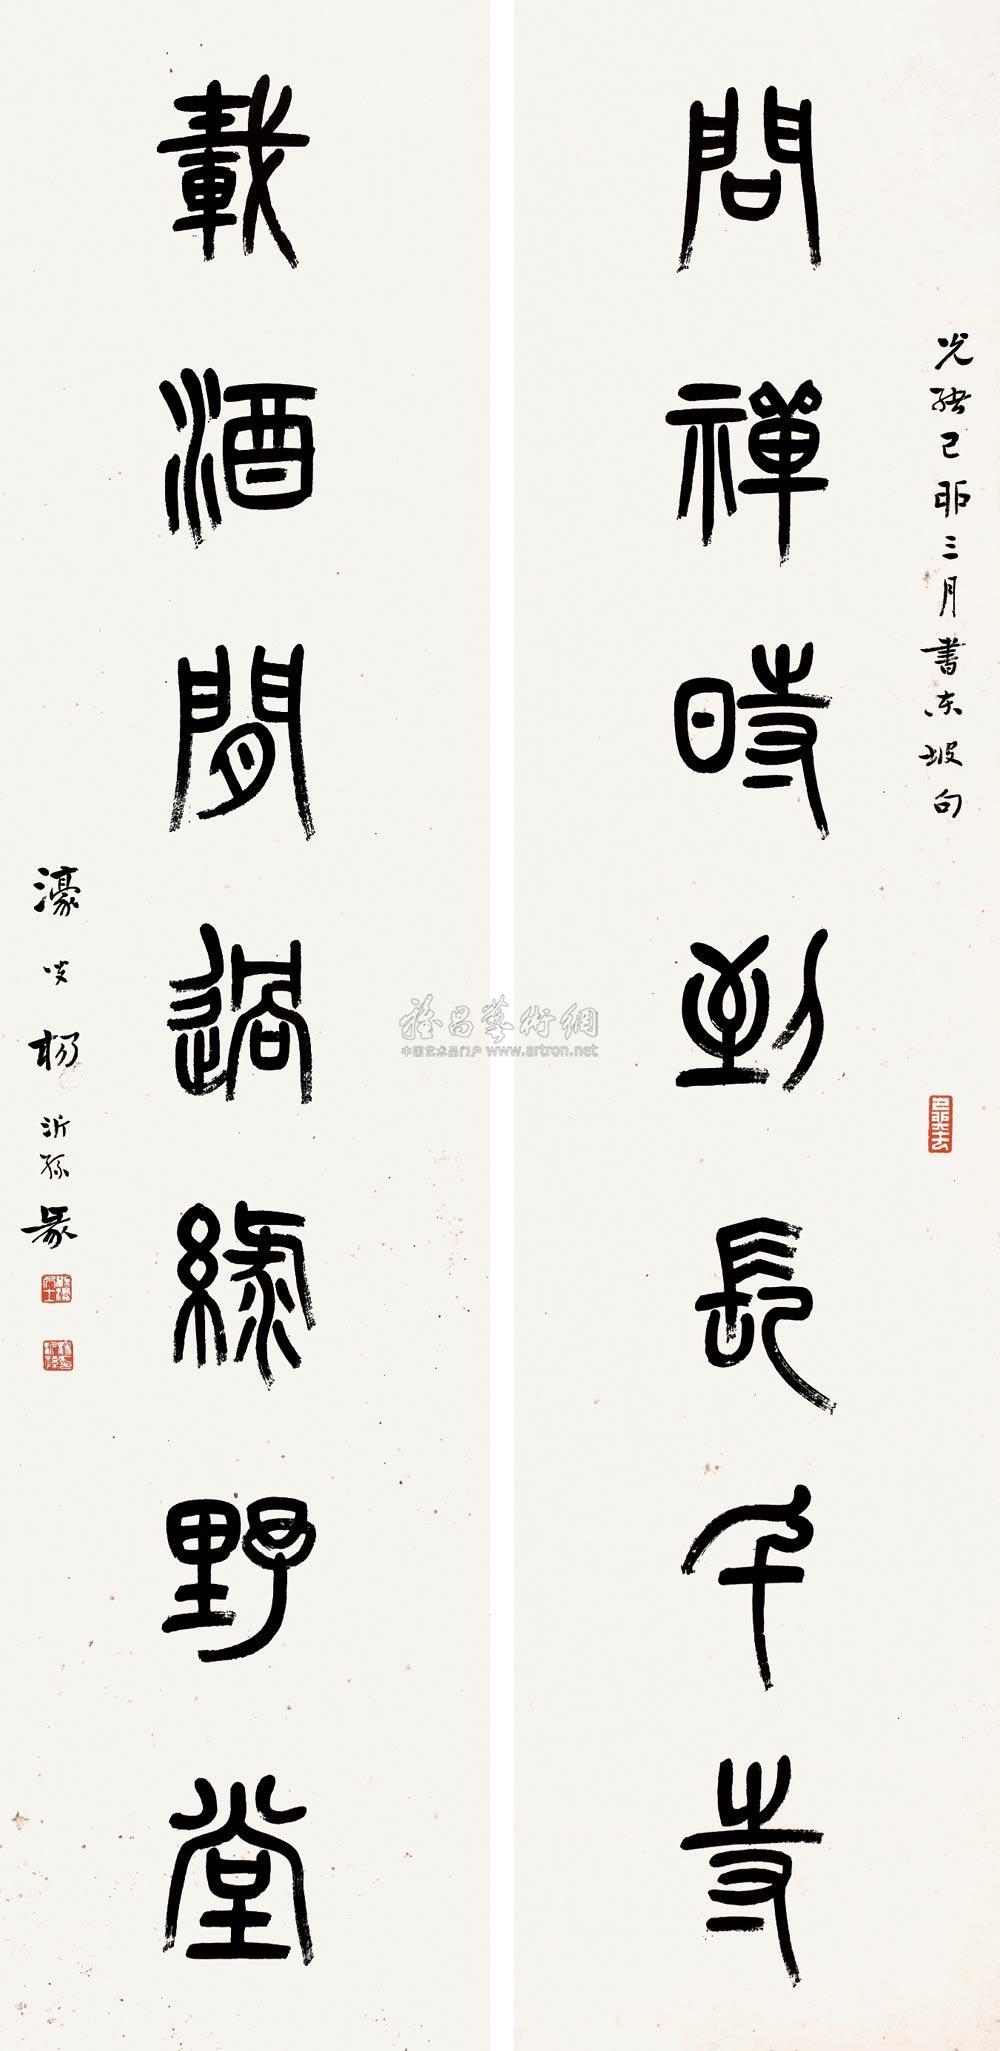 問禪時到長干寺
光緒己卯三月書東坡句
載酒閒過綠野堂
濠叟楊沂孫篆
雅昌藝術網
中国艺术品门户 www.artron.net